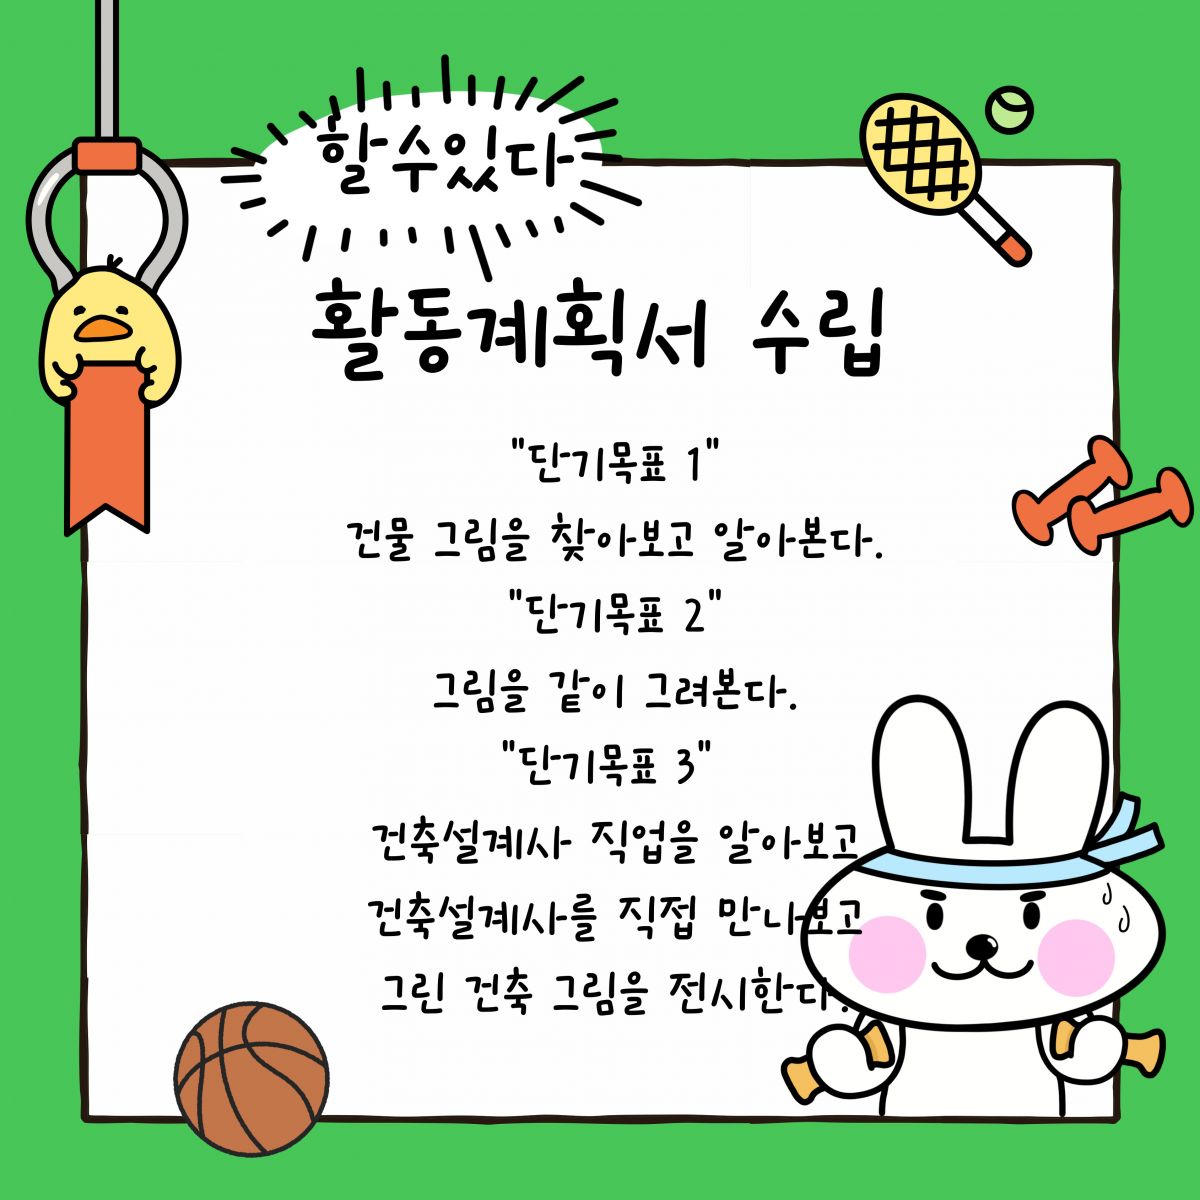 할수있다
활동계획서 수립
"단기목표 1"
건물 그림을 찾아보고 알아본다.
"단기목표 2"
그림을 같이 그려본다.
"단기목표 3"
건축설계사 직업을 알아보고
건축설계사를 직접 만나보고
그린 건축 그림을 전시한다.